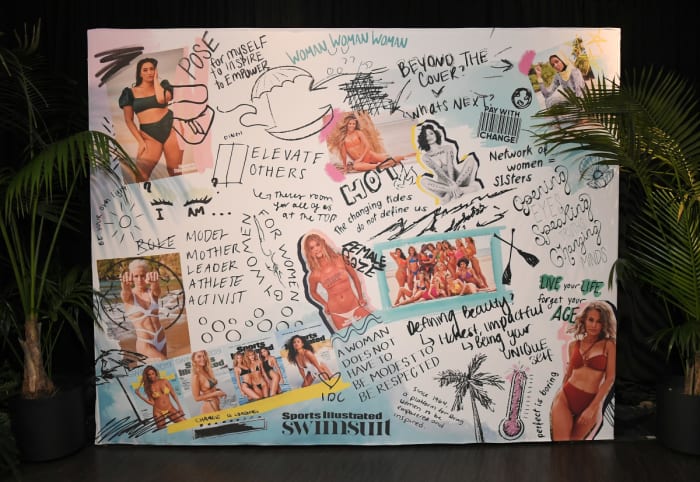 POSE
for myself
to inspire
to EMPOWER
WOMAN WOMAN WOMAN
BEYOND THE
COVER?
WhatS NEXT?
PAY WITH
CHANGE
ELEVATE
OTHERS
theres room
for all of us
at the TOP
HOT
The changing tides
do not define us
Network of
women =
SISTERS
Opening
EYES
Speaking
Changing
MINDS
I AM...
ROLE MODEL
MOTHER
LEADER
ATHLETE
ACTIVIST
FOR WOMEN
BY WOMEN
FEMALE
GAZE
LIVE your LIFE
forget your
AGE
Defining Beauty?
Honest, impactful
Being your
UNIQUE self
A WOMAN
DOES NOT
HAVE TO
BE MODEST TO
BE RESPECTED
I ♡
IDC
Since 1964
a platform for
women to be
empowered and
inspired.
perfect is boring
CHANGE is LOADING
Sports Illustrated
swimsuit